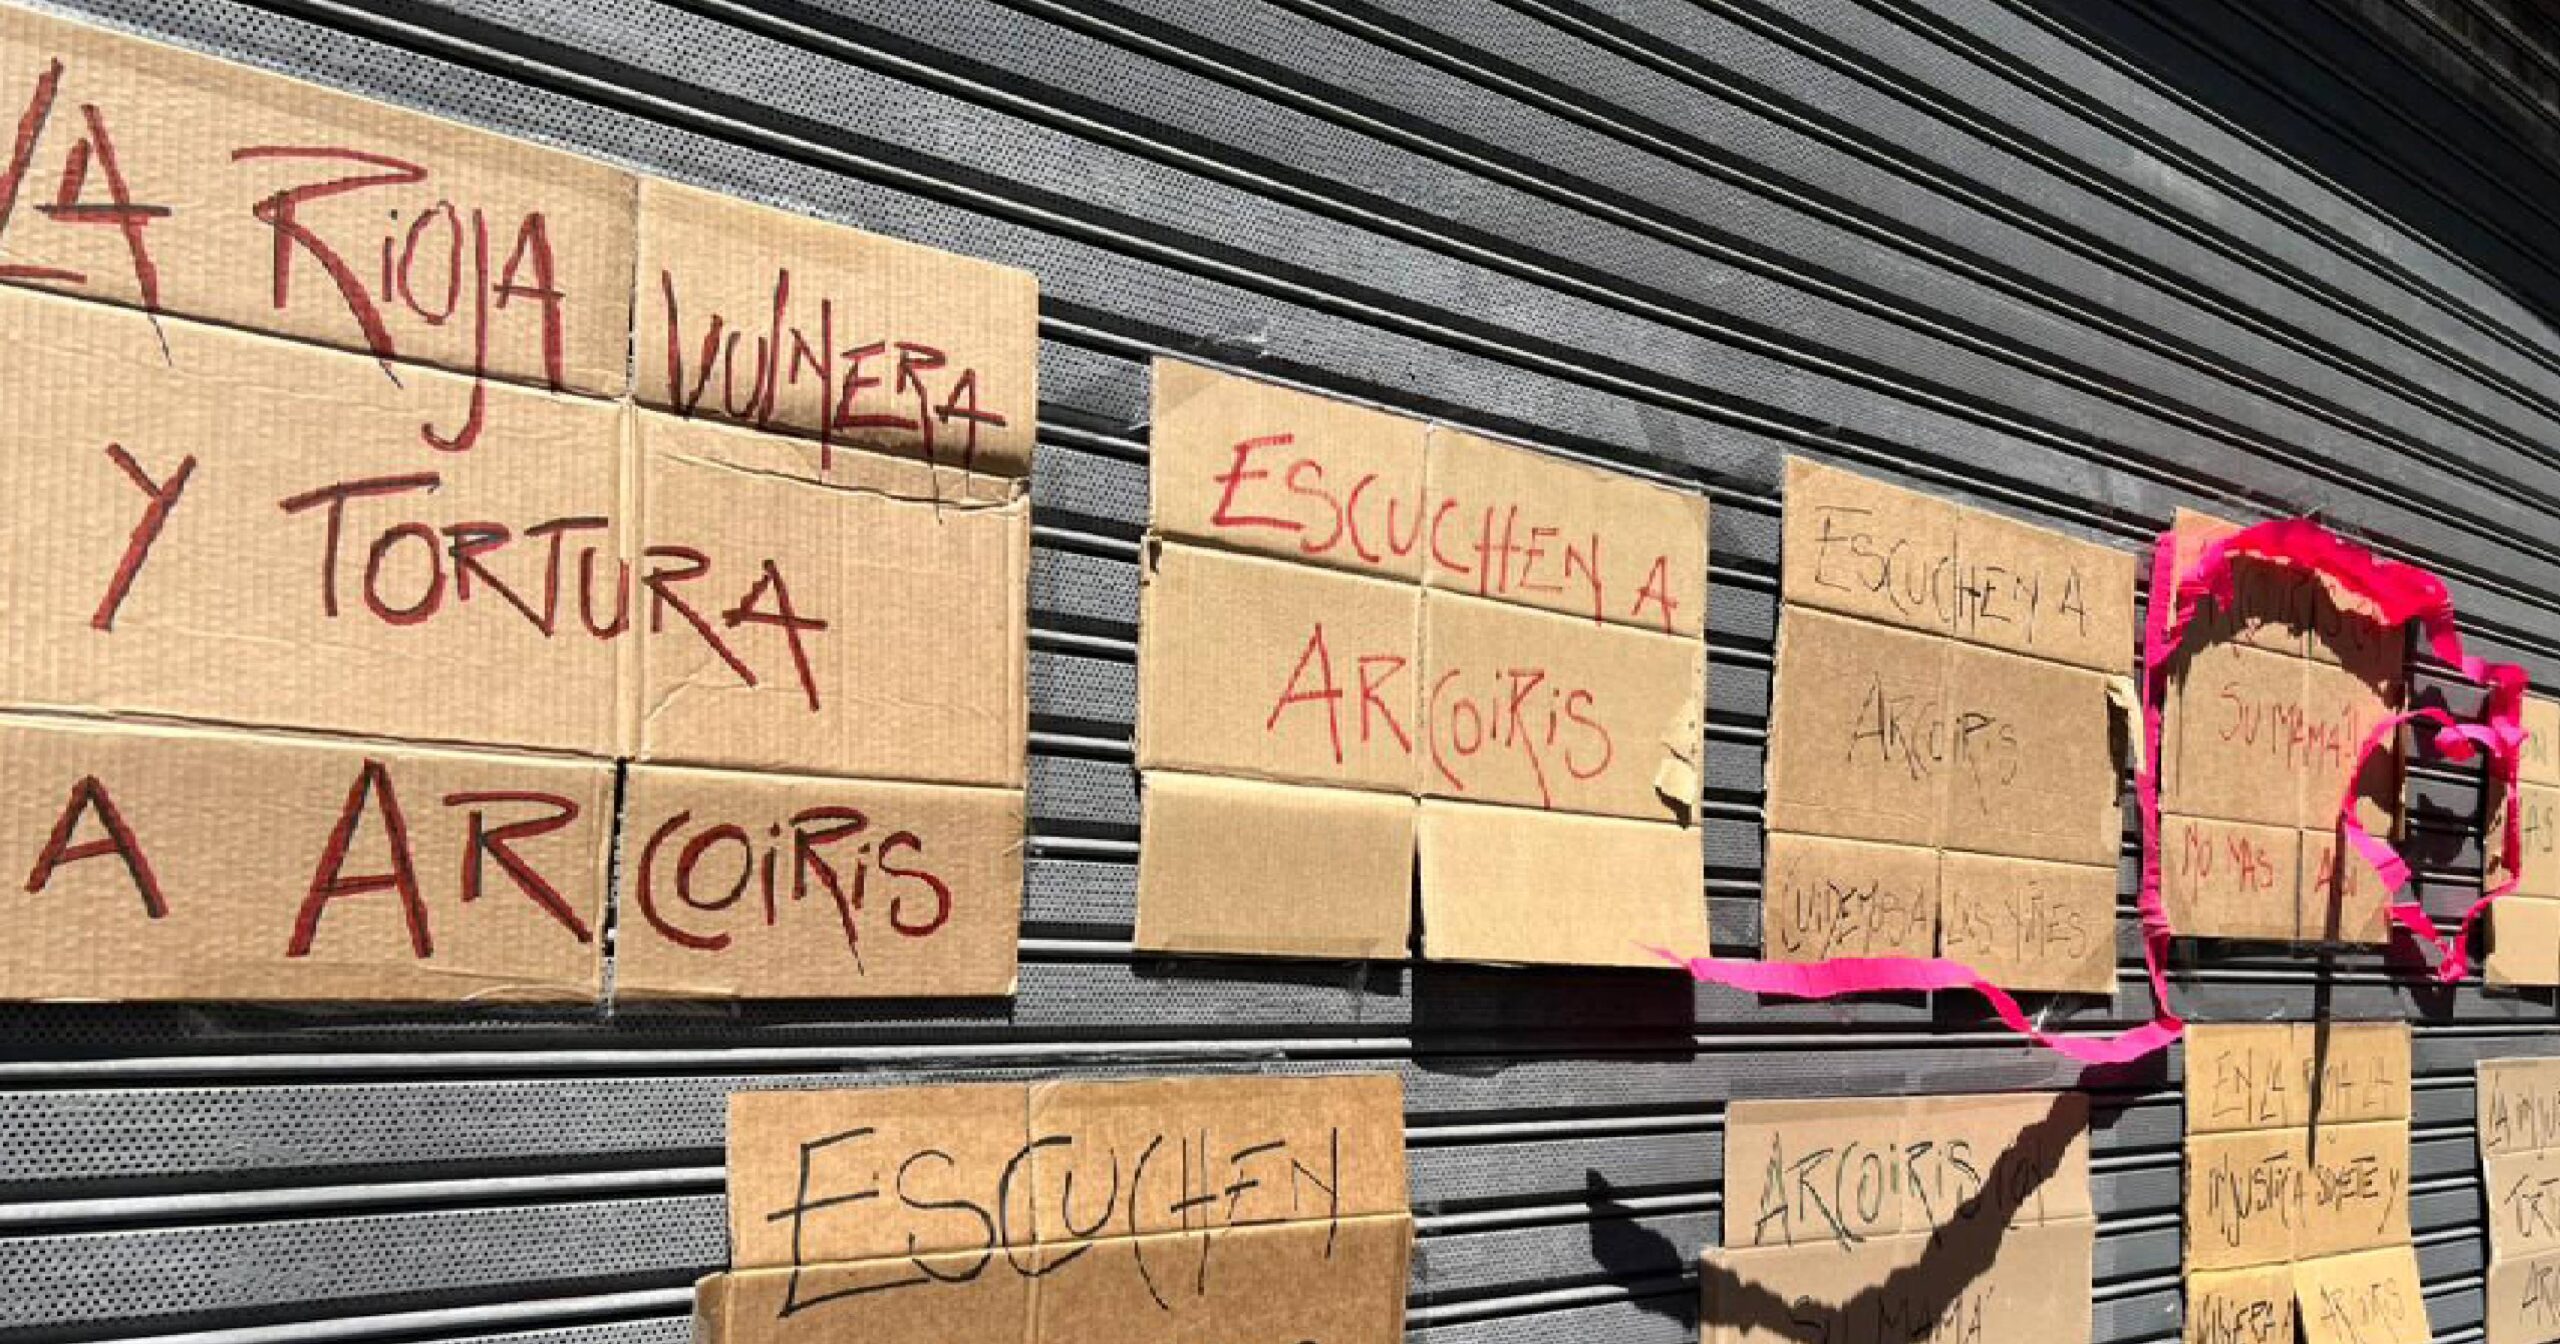 LA RIOJA VULNERA
Y TORTURA
A ARCOIRIS
ESCUCHEN A
ARCOIRIS
ESCUCHEN A
ARCOIRIS
CUIDEMOS A LXS NIÑES
SU MAMA!!
NO MAS ASI
AS
ESCUCHEN
ARCOIRIS CON
SU MAMA
EN LA RIOJA LA
INJUSTICIA SOMETE Y
VULNERA A ARCOIRIS
LA